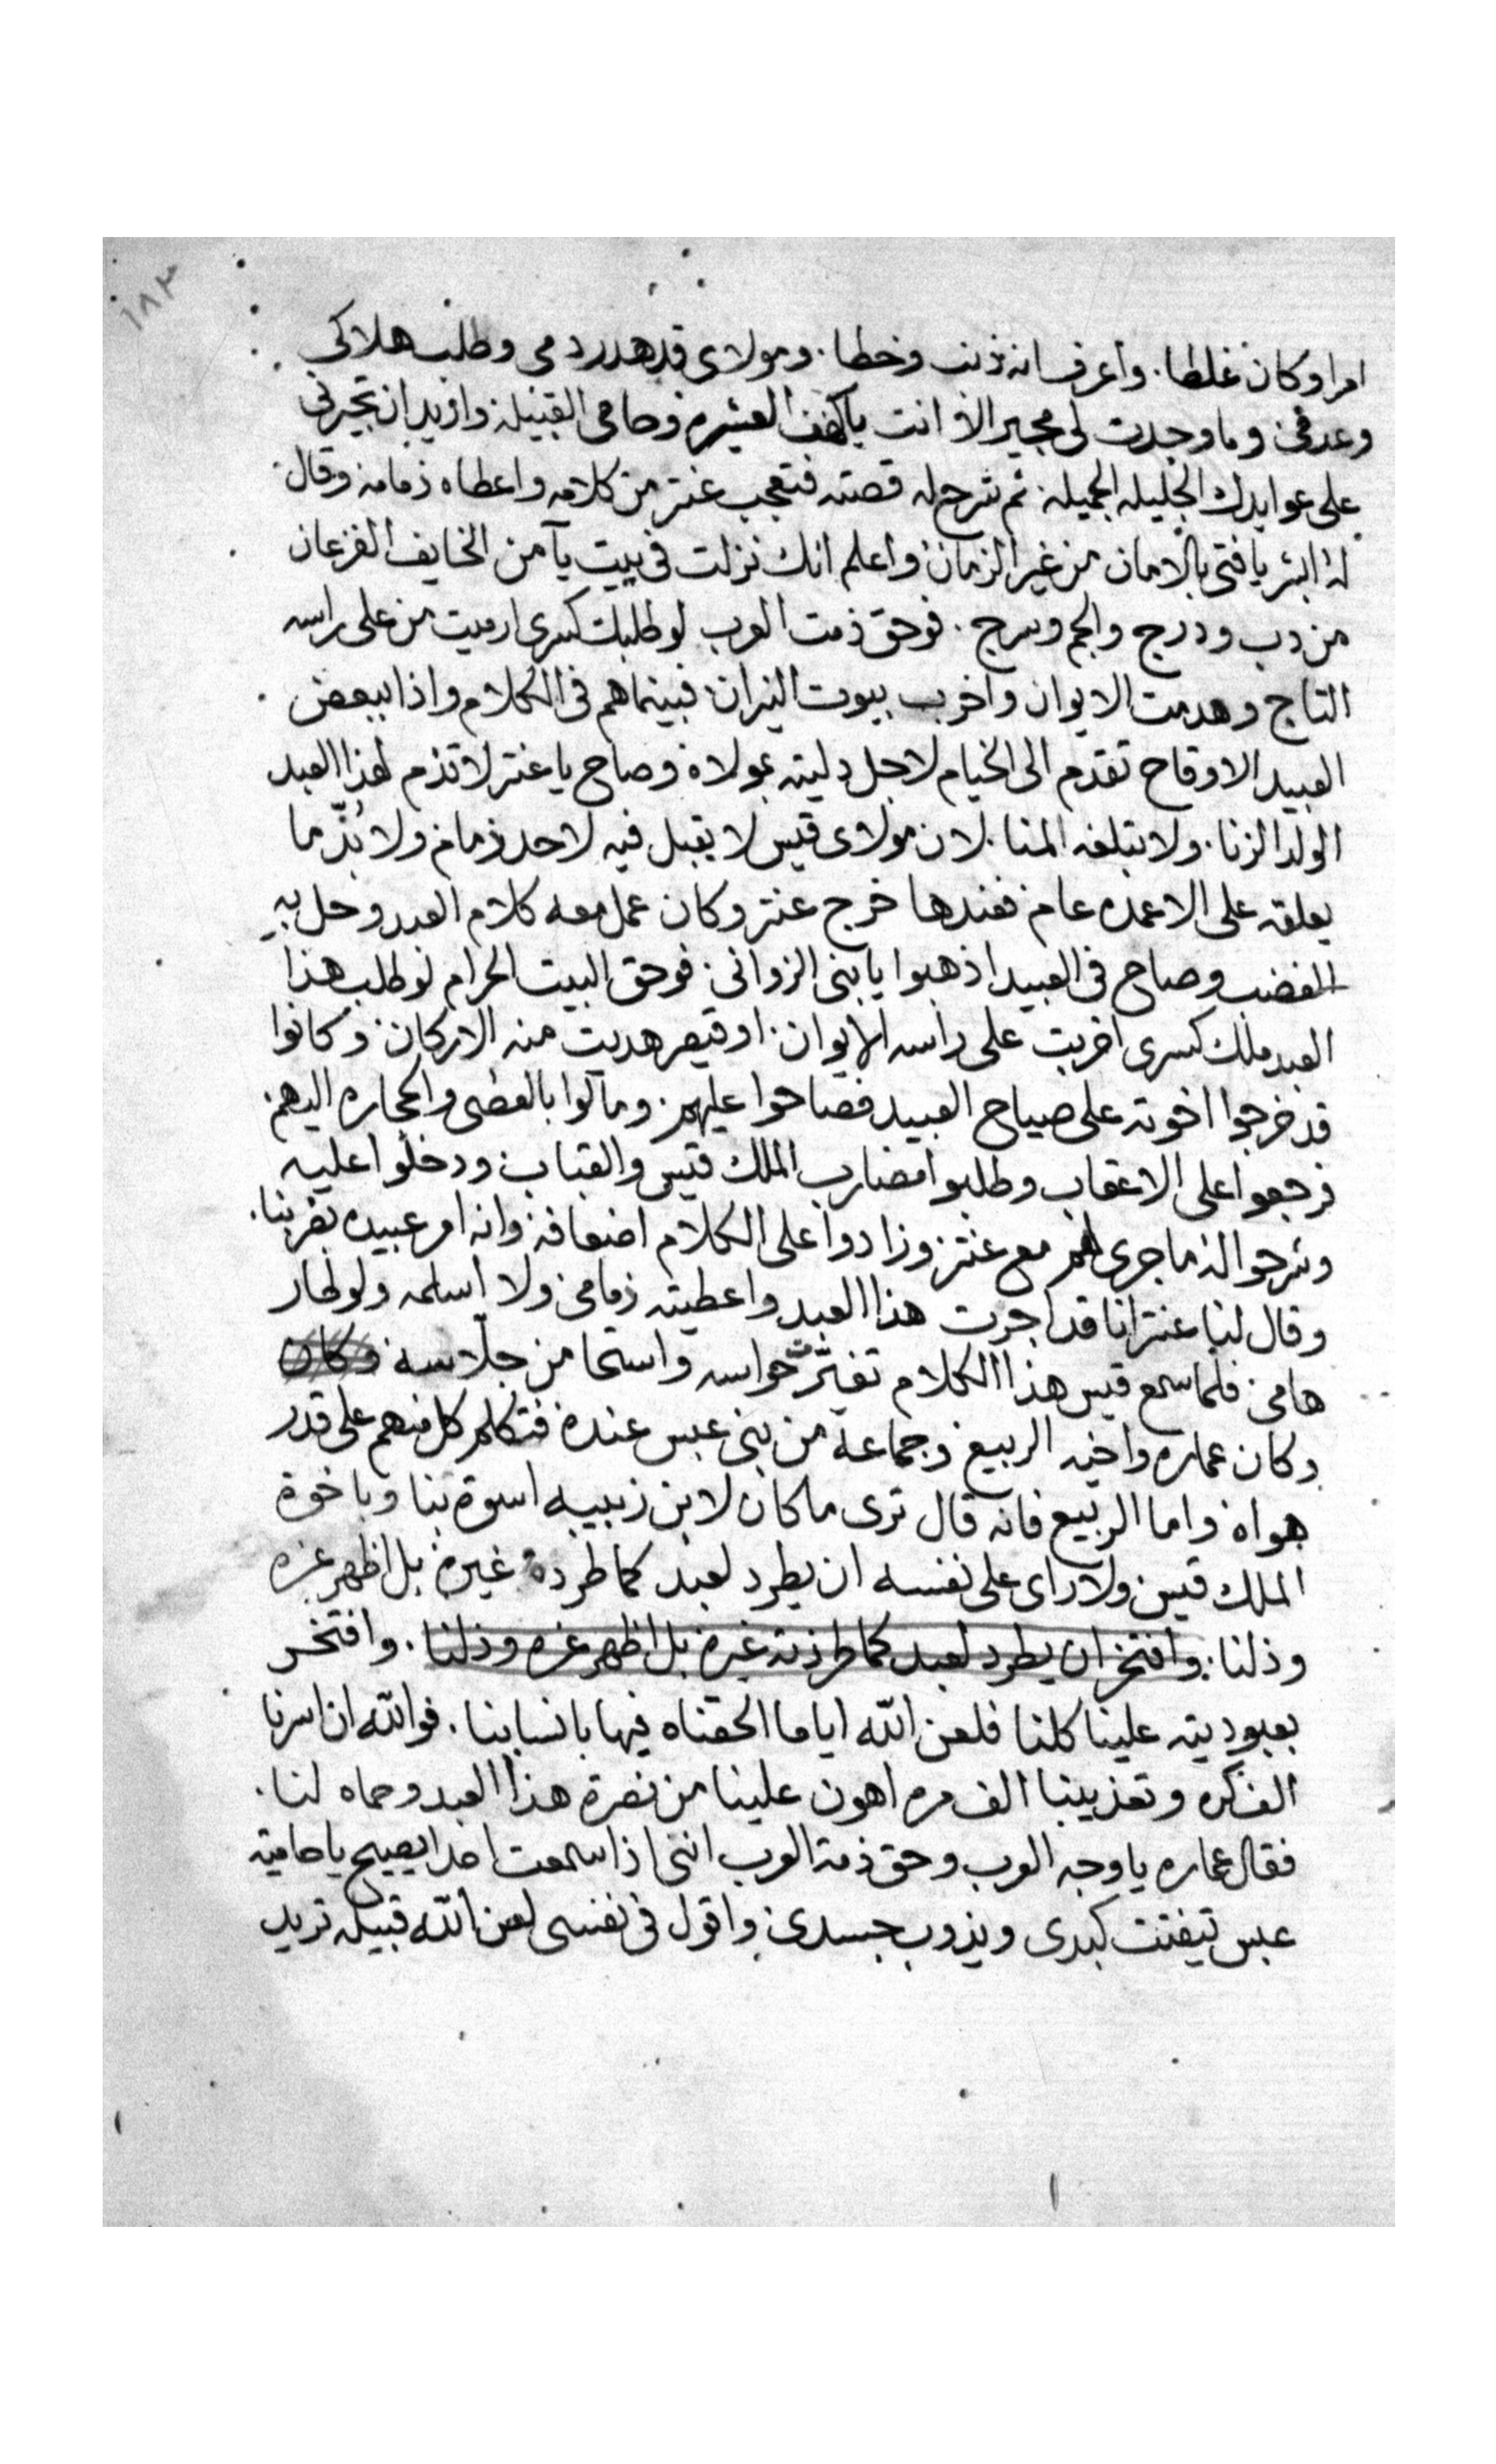 ١٨٣
امرا وكان غلطا. واعرف انه ذنب وخطا. ومولاى قد هدر دمى وطلب هلاكى
وعدمى وما وجدت لى مجير الا انت ياكهف العشيره وحامى القبيله واريد ان تجيرنى
على عوايدك الجليله الجميله. ثم شرح له قصته فتعجب عنتر من كلامه واعطاه ذمامه وقال
له ابشر يا فتى بالامان من غير الزمان واعلم انك نزلت فى بيت يآمن الخايف الفزعان
من دب ودرج والجم وسرج. فوحق ذمت العرب لو طلبك كسرى ارميت من على راسه
التاج وهدمت الايوان واخرب بيوت النيران فبينماهم فى الكلام واذا ببعض
العبيد الاوقاح تقدم الى الخيام لاجل دليته بمولاه وصاح يا عنتر لا تذم لهذا العبد
الولد الزنا. ولا تبلغه المنا. لان مولاى قيس لا يقبل فيه لاحد ذمام ولا بدّ ما
يعلقه على الاعمده عام فعندها خرج عنتر وكان عمل معه كلام العبد وحل به
الغضب وصاح فى العبيد اذهبوا يا بنى الزوانى. فوحق البيت الحرام لو طلب هذا
العبد ملك كسرى اخربت على راسه الايوان. او قيصر هديت منه الاركان وكانوا
قد خرجوا اخوته على صياح العبيد فصاحوا عليهم. ومالوا بالعصى والحجاره اليهم.
فرجعوا على الاعقاب وطلبوا مضارب الملك قيس والقباب ودخلوا عليه
وشرحوا له ماجرى لهم مع عنتر وزادوا على الكلام اضعافه وانه امر عبيده بضربنا.
وقال لنا عنتر انا قد اجرت هذا العبد واعطيته ذمامى ولا اسلمه ولو طار
هامى. فلما سمع قيس هذا الكلام تغيّرت حواسه واستحا من جلاسه وكان
وكان عماره واخيه الربيع وجماعة من بنى عبس عنده فتكلم كل منهم على قدر
هواه واما الربيع فانه قال ترى ما كان لابن زبيبه اسوة بنا وباخوة
الملك قيس ولا راى على نفسه ان يطرد لعبد كما طرده غيره بل اظهر عزه
وذلنا. وافتخر ان يطرد لعبد كما طردته غيره بل اظهر عزه وذلنا. وافتخر
بعبوديته علينا كلنا فلعن الله اياما الحقناه فيها بانسابنا. فوالله ان اسرنا
الف كره وتعذيبنا الف مره اهون علينا من نصرة هذا العبد وحماه لنا.
فقال عماره يا وجه العرب وحق ذمة العرب اننى اذا سمعت احدا يصيح يا حامية
عبس تيفتت كبدى ويذوب جسدى. واقول فى نفسى لعن الله قبيله تريد